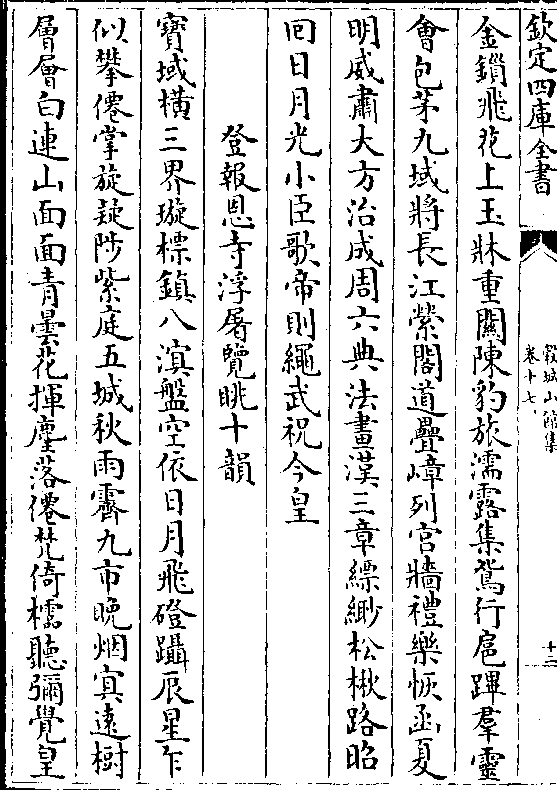 欽定四庫全書
穀城山館集
卷十七
十三
金鎖飛花上玉牀重關陳豹旅濡露集鴛行扈蹕羣靈
會包茅九域將長江縈閣道疊嶂列宫牆禮樂恢函夏
明威肅大方治成周六典法畫漢三章縹緲松楸路昭
囘日月光小臣歌帝則繩武祝今皇
登報恩寺浮屠覽眺十韻
寳域橫三界璇標鎮八溟盤空依日月飛磴躡辰星乍
似攀僊掌旋疑陟紫庭五城秋雨霽九市晩烟㝠遠樹
層層白連山面面青曇花揮麈落僊梵倚櫺聽彌覺皇